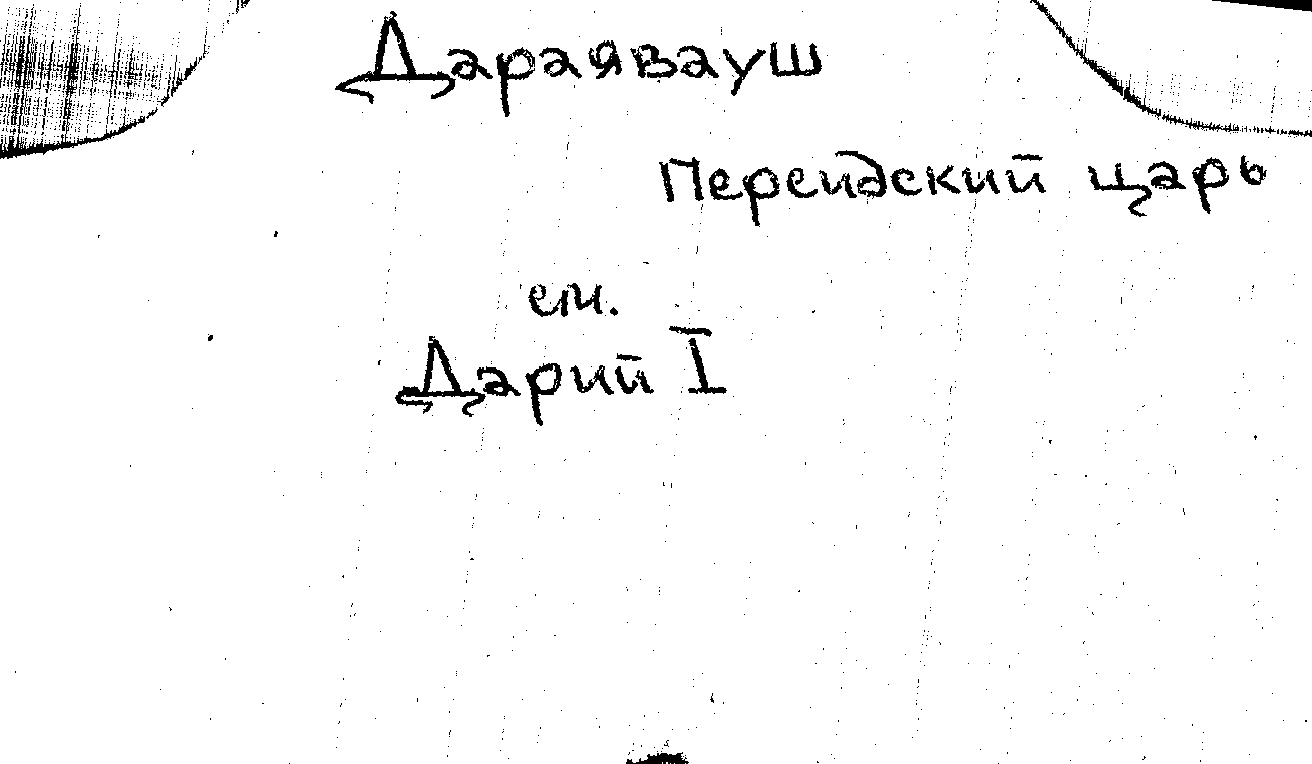 Дараявауш
Персидский царь
см.
Дарий I